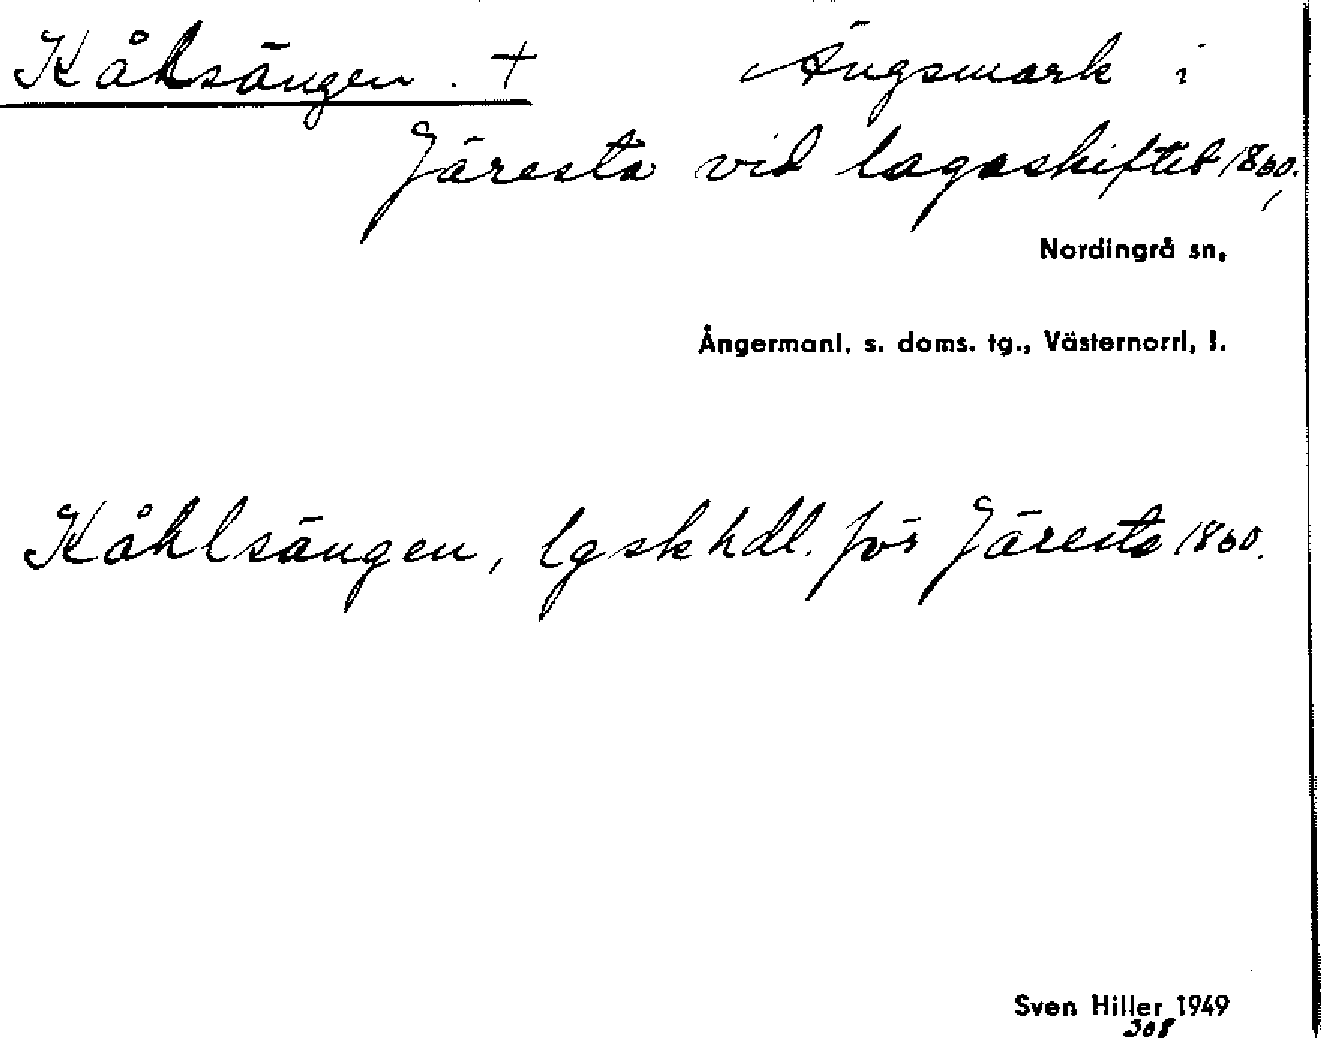 Kålsängen. + Ängsmark i
Järesta vid lagaskiftet 1860.
Nordingrå sn,
Ångermanl. s. doms. tg., Västernorrl, l.
Kåhlsängen, lgskhdl. för Järesta 1860.
Sven Hiller 1949
308